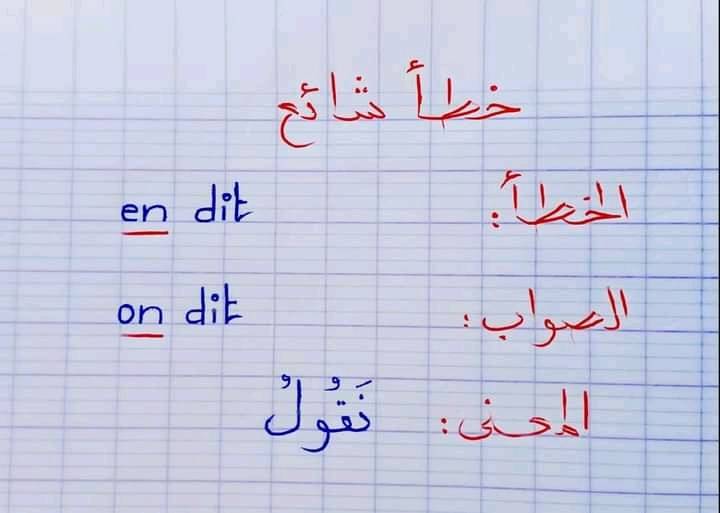 خطأ شائع
الخطأ: en dit
الصواب: on dit
المعنى: نَقُولُ